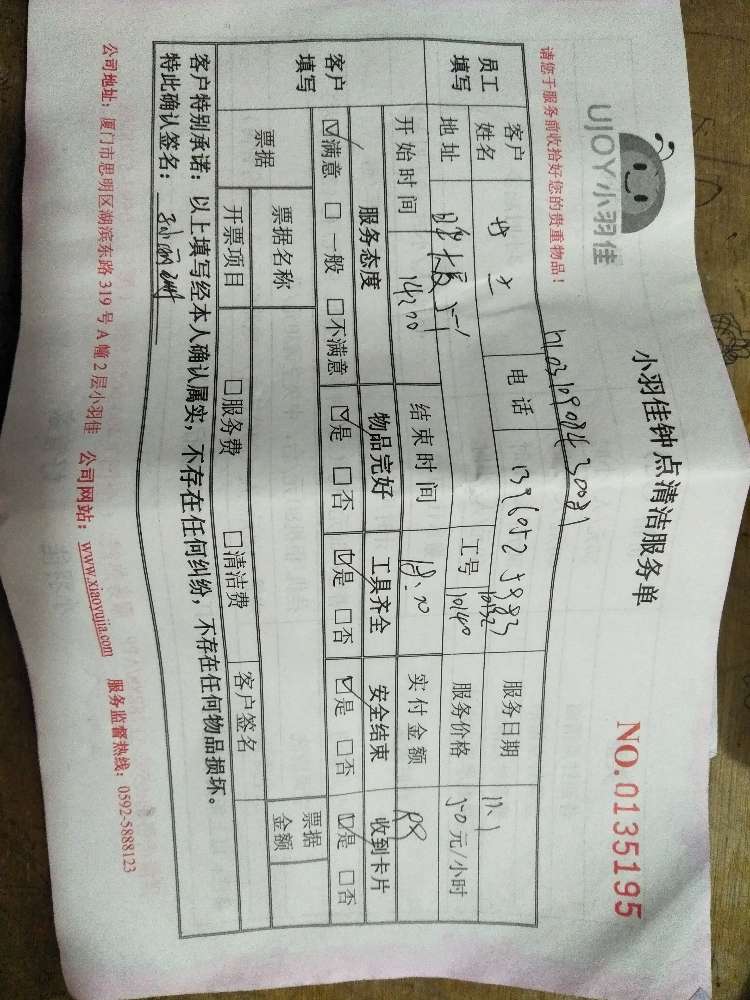 UJOY小羽佳
小羽佳钟点清洁服务单
NO.0135195
请您于服务前收拾好您的贵重物品！
员工填写
客户姓名
电话
服务日期
地址
工号
服务价格
50元/小时
开始时间
14:00
结束时间
18:00
实付金额
客户填写
服务态度 物品完好 工具齐全 安全结束 收到卡片
☑满意 □一般 □不满意 ☑是 □否 ☑是 □否 ☑是 □否 ☑是 □否
票据
票据名称
票据金额
开票项目
□服务费 □清洁费
客户签名
客户特别承诺：以上填写经本人确认属实，不存在任何纠纷，不存在任何物品损坏。
特此确认签名：
公司地址：厦门市思明区湖滨东路319号A幢2层小羽佳 公司网站：www.xiaoyujia.com 服务监督热线：0592-5888123